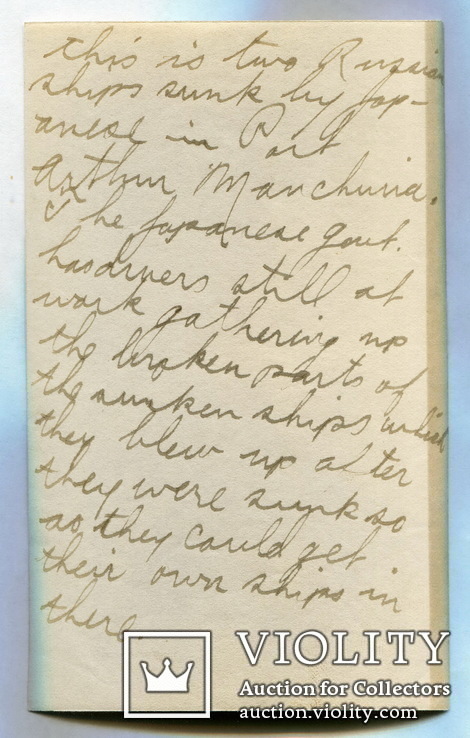 This is two Russian
ships sunk by Jap-
anese in Port
Arthur Manchuria.
The Japanese govt.
has divers still at
work gathering up
the broken parts of
the sunken ships which
they blew up after
they were sunk so
as they could get
their own ships in
there.
VIOLITY
Auction for Collectors
auction.violity.com